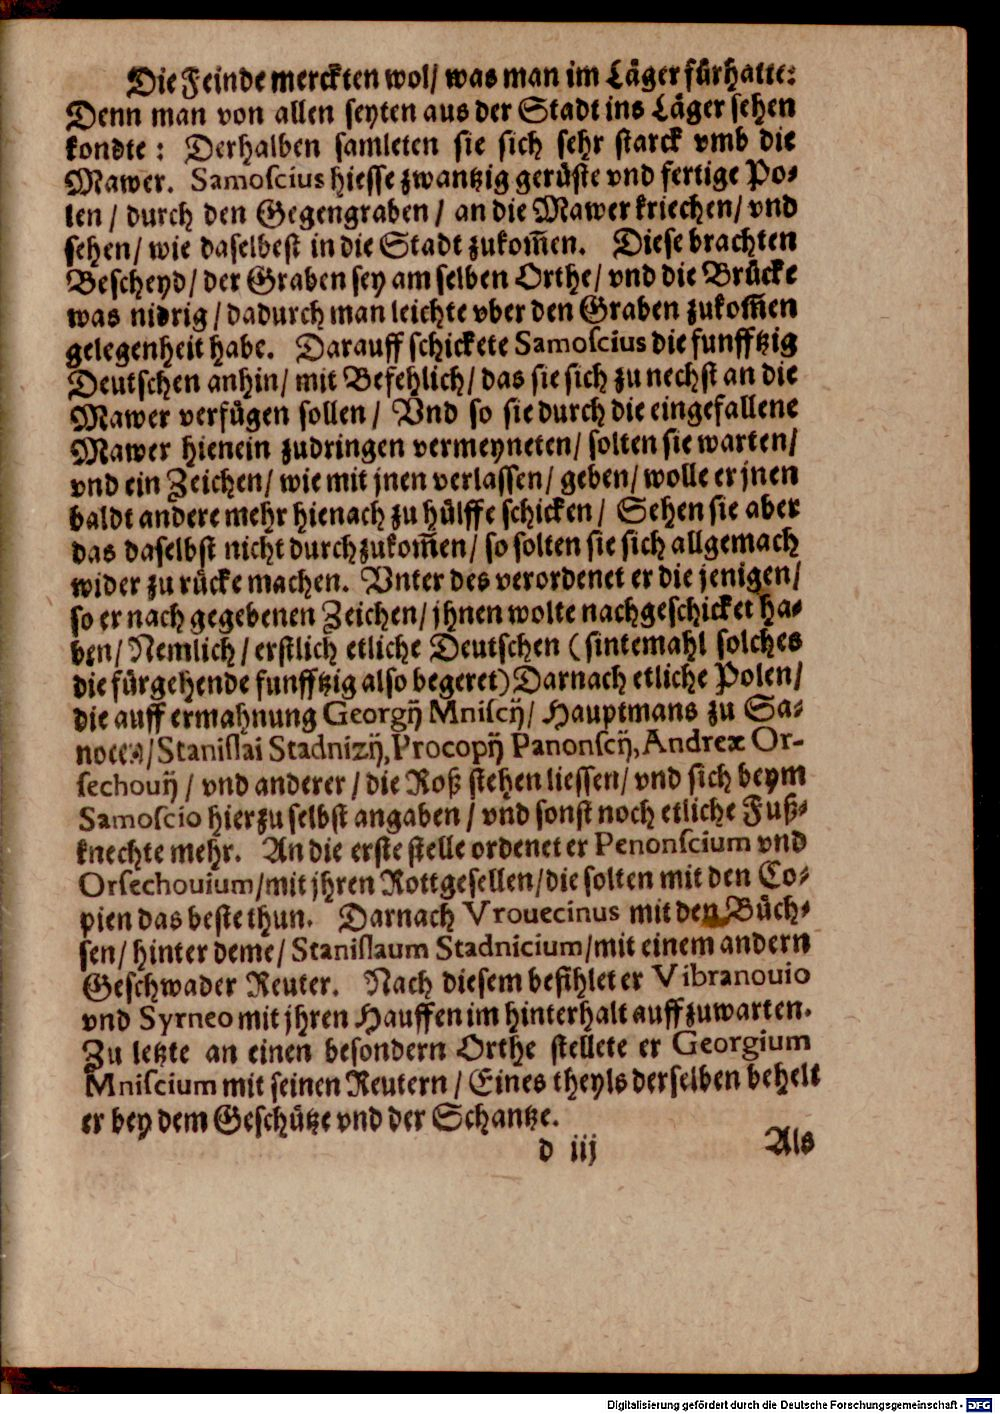 Die Feinde merckten wol/ was man im Läger fürhatte:
Denn man von allen seyten aus der Stadt ins Läger sehen
kondte: Derhalben samleten sie sich sehr starck vmb die
Mawer. Samoscius hiesse zwantzig gerüste vnd fertige Po-
len/ durch den Gegengraben/ an die Mawer kriechen/ vnd
sehen/ wie daselbest in die Stadt zukom̃en. Diese brachten
Bescheyd/ der Graben sey am selben Orthe/ vnd die Brücke
was nidrig/ dadurch man leichte vber den Graben zukom̃en
gelegenheit habe. Darauff schickete Samoscius die funfftzig
Deutschen anhin/ mit Befehlich/ das sie sich zu nechst an die
Mawer verfügen sollen/ Vnd so sie durch die eingefallene
Mawer hienein zudringen vermeyneten/ solten sie warten/
vnd ein Zeichen/ wie mit jnen verlassen/ geben/ wolle er jnen
baldt andere mehr hienach zu hülffe schicken/ Sehen sie aber
das daselbst nicht durchzukom̃en/ so solten sie sich allgemach
wider zu rücke machen. Vnter des verordenet er die jenigen/
so er nach gegebenen Zeichen/ jhnen wolte nachgeschicket ha-
ben/ Nemlich/ erstlich etliche Deutschen (sintemahl solches
die fürgehende funfftzig also begeret) Darnach etliche Polen/
die auff ermahnung Georgij Mniscij/ Hauptmans zu Sa-
Stanislai Stadnizij, Procopij Panonscij, Andreæ Or-
sechouij/ vnd anderer/ die Roß stehen liessen/ vnd sich beym
Samoscio hierzu selbst angaben/ vnd sonst noch etliche Fuß-
knechte mehr. An die erste stelle ordenet er Penonscium vnd
Orsechouium/ mit jhren Rottgesellen/ die solten mit den Co-
pien das beste thun. Darnach Vrouecinus mit den Büch-
sen/ hinter deme/ Stanislaum Stadnicium/ mit einem andern
Geschwader Reuter. Nach diesem befihlet er Vibranouio
vnd Syrneo mit jhren Hauffen im hinterhalt auffzuwarten.
Zu letzte an einen besondern Orthe stellete er Georgium
Mniscium mit seinen Reutern/ Eines theyls derselben behelt
er bey dem Geschütze vnd der Schantze.
d iij Als
Digitalisierung gefördert durch die Deutsche Forschungsgemeinschaft - DFG